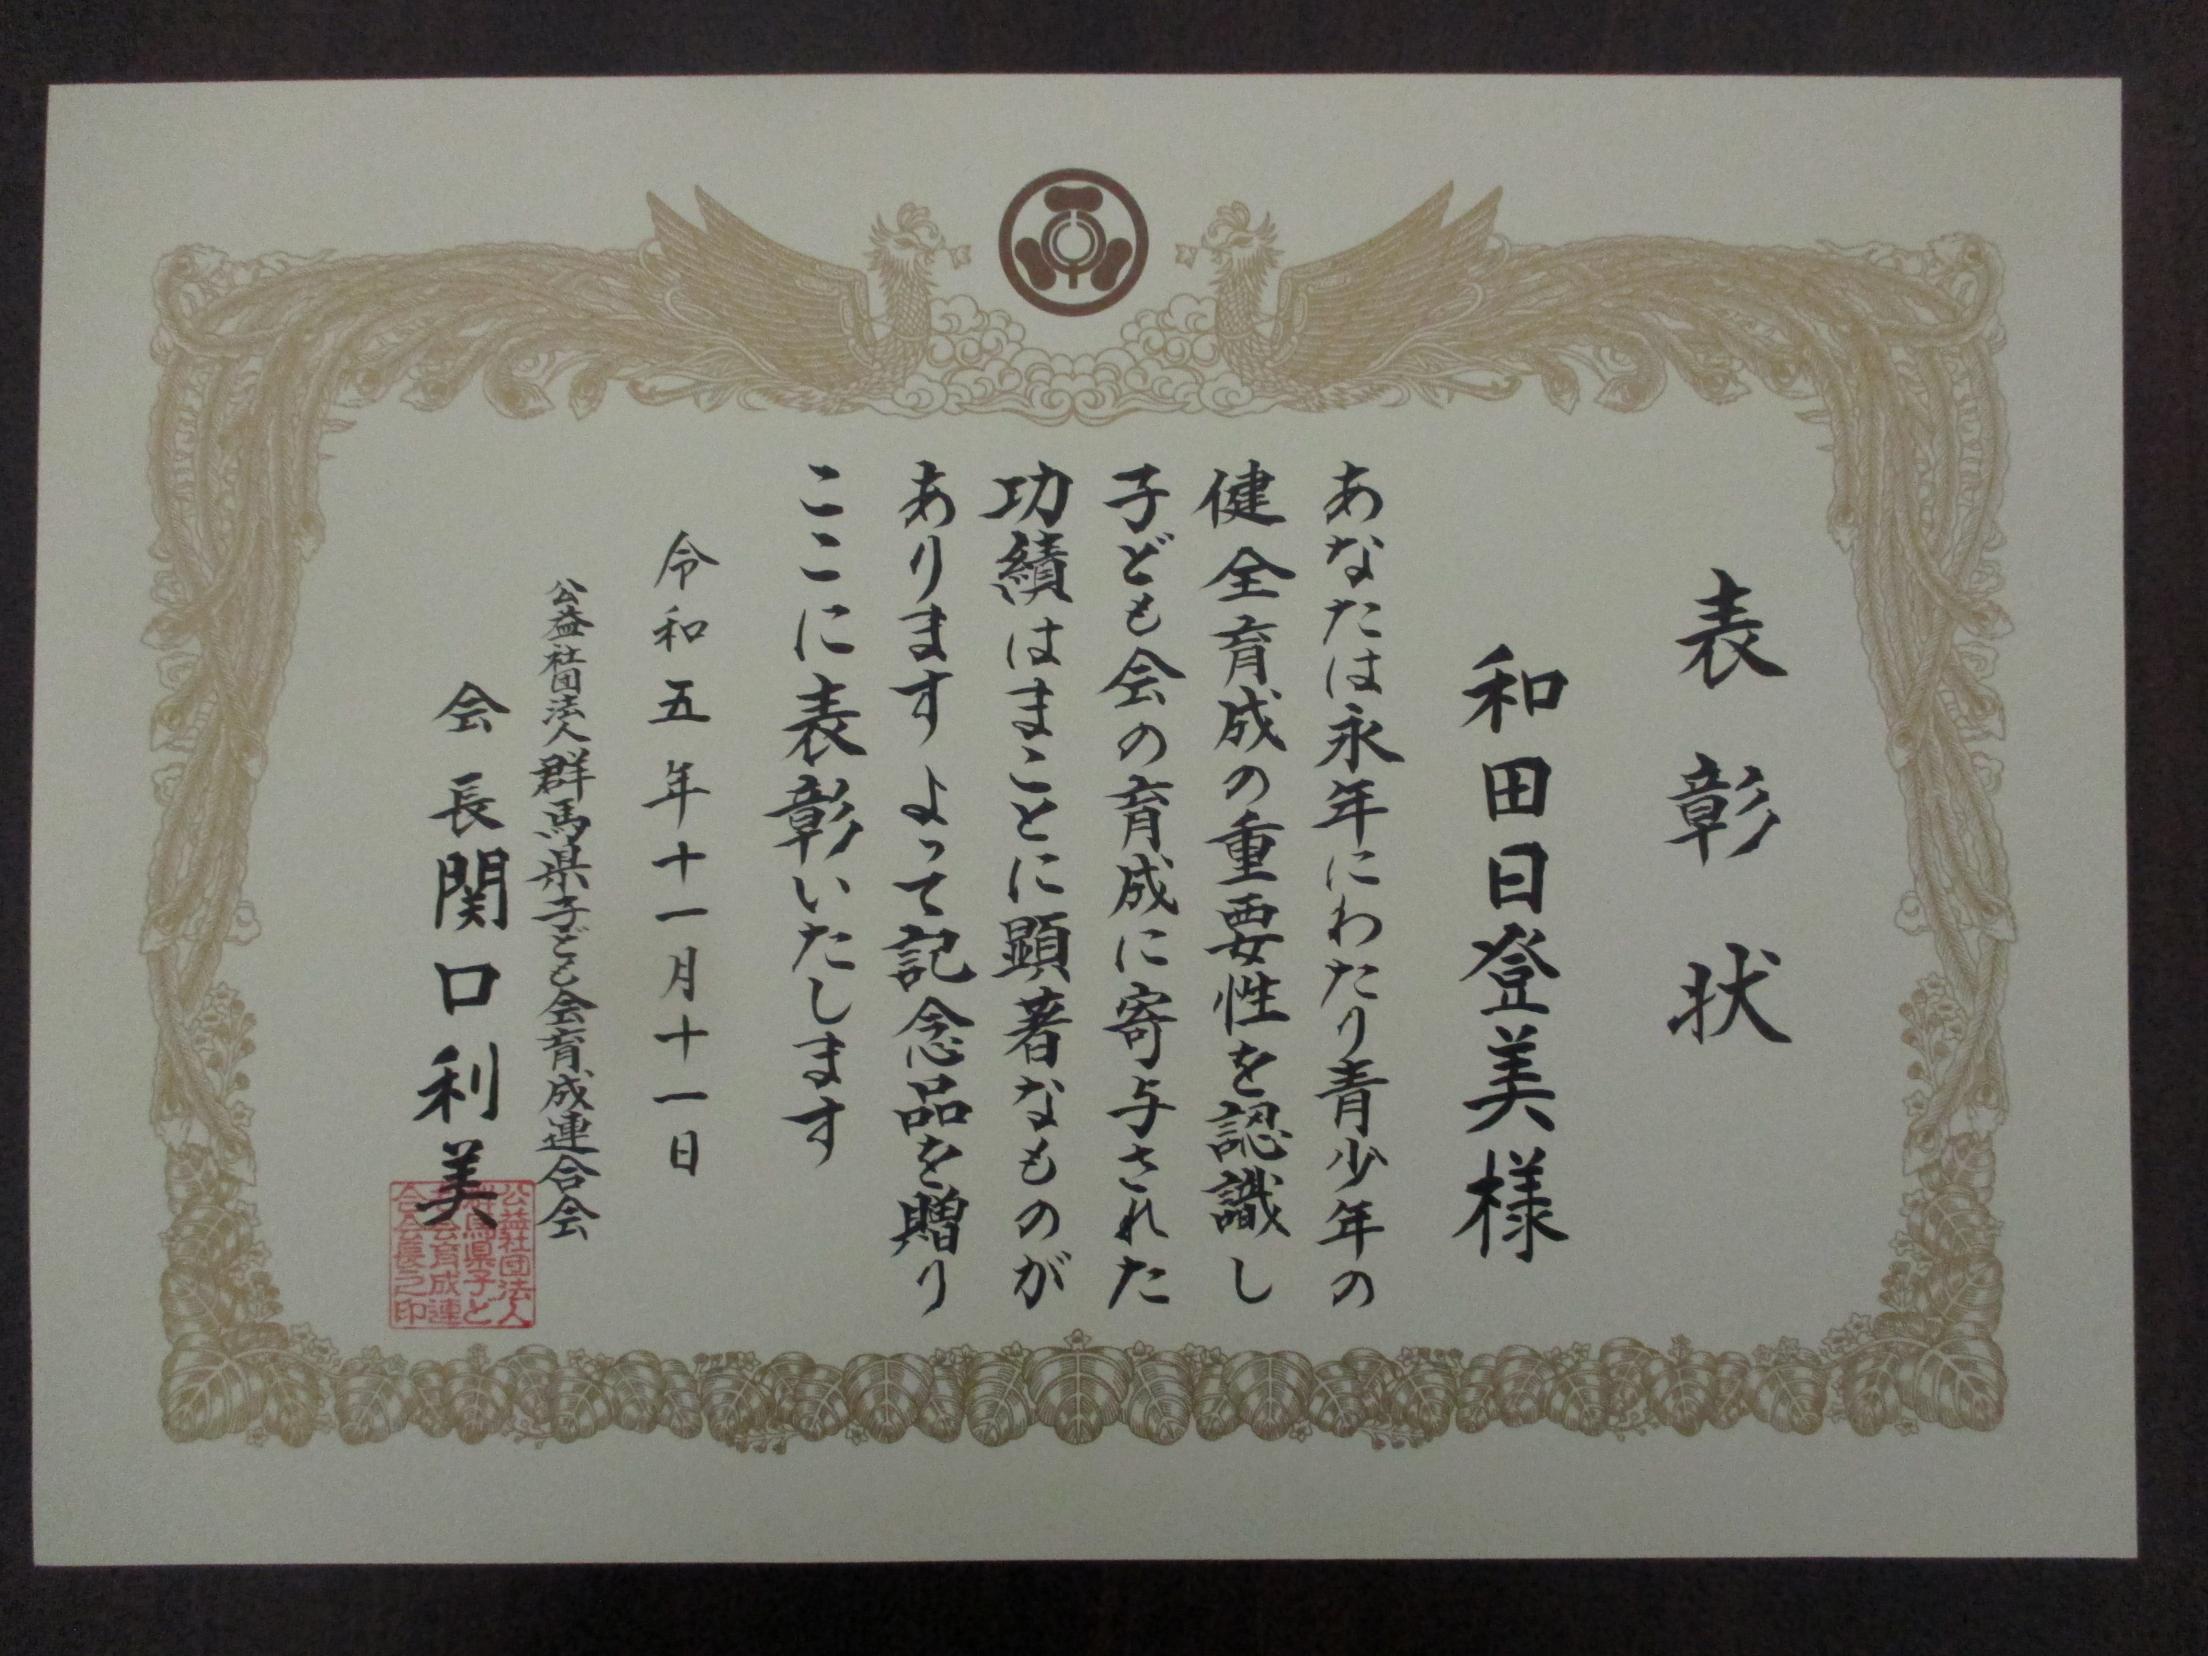 表彰状
和田日登美様
あなたは永年にわたり青少年の
健全育成の重要性を認識し
子ども会の育成に寄与された
功績はまことに顕著なものが
あります よって記念品を贈り
ここに表彰いたします
令和五年十一月十一日
公益社団法人群馬県子ども会育成連合会
会長関口利美
公益社団法人
群馬県子ど
も会育成連
合会長之印